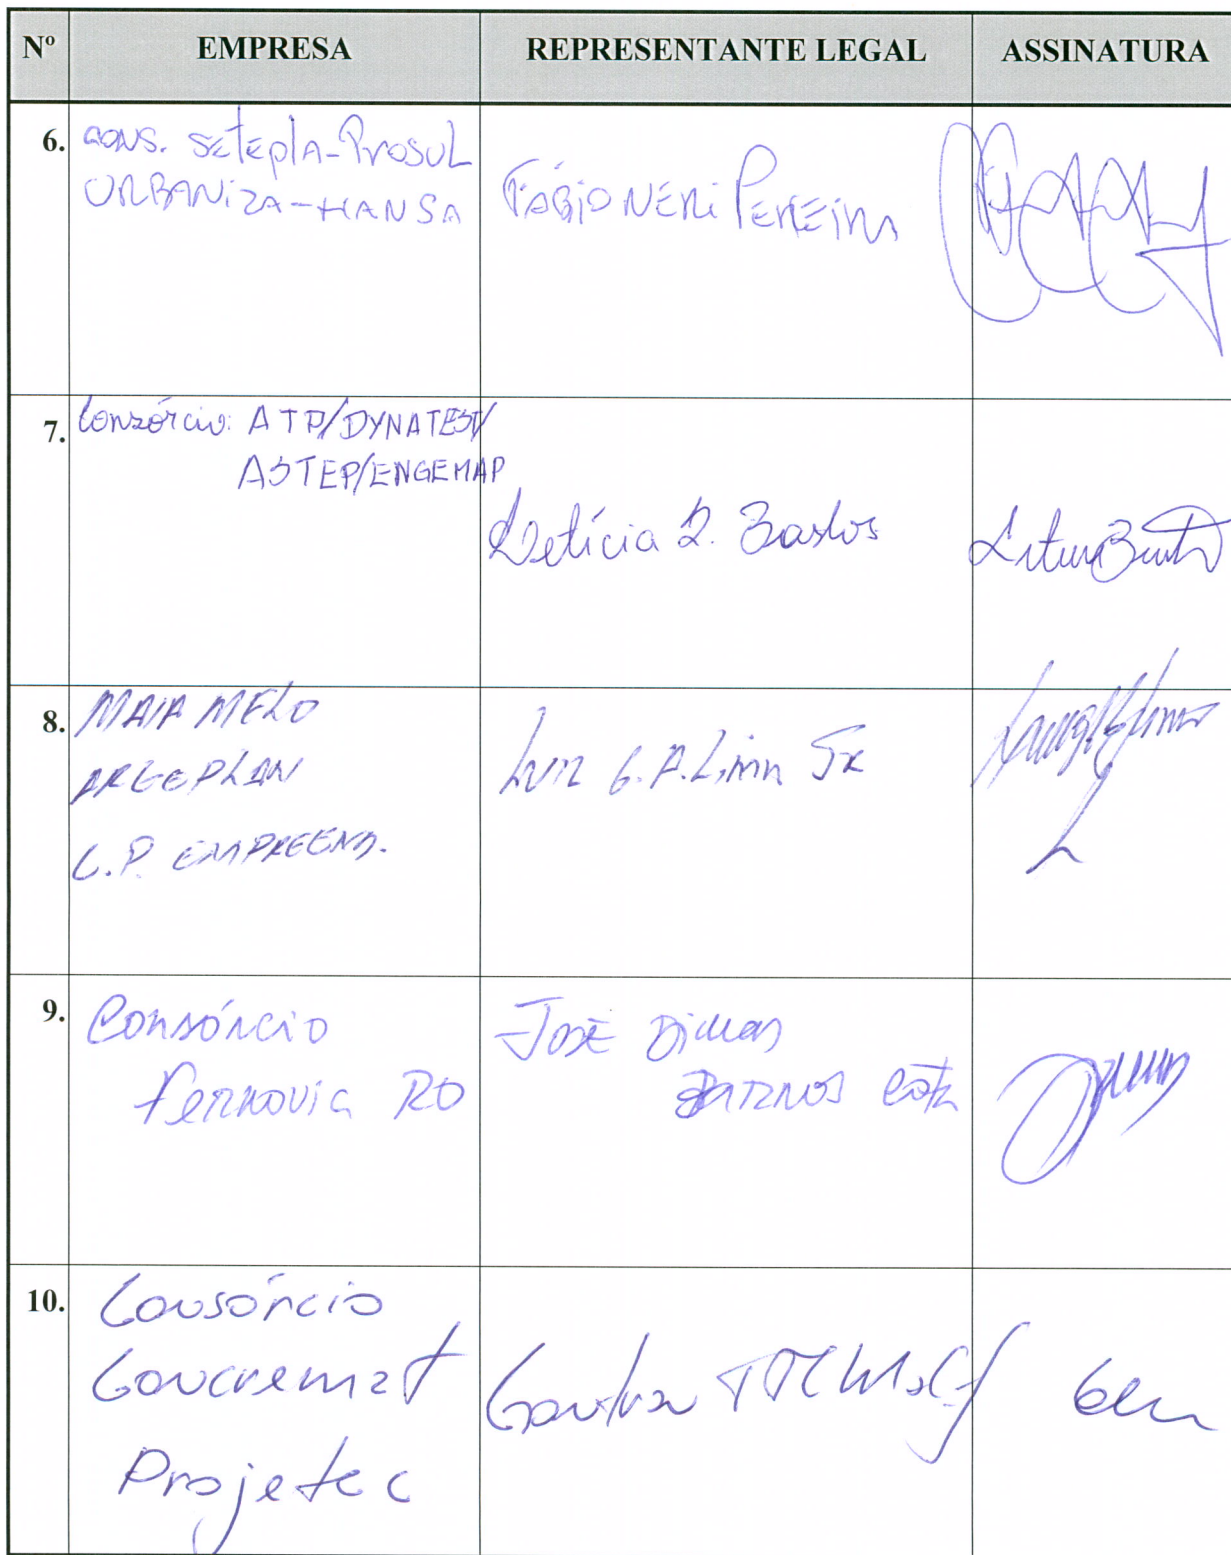 Nº EMPRESA REPRESENTANTE LEGAL ASSINATURA
6. CONS. SETEPLA-PROSUL
URBANIZA-HANSA
FÁBIO NERI PEREIRA
7. Consórcio: ATP/DYNATEST/
ASTEP/ENGEMAP
Letícia R. Bastos
8. MAIA MELO
ARGEPLAN
C.P. EMPREEND.
Luiz G. A. Lima Jr
9. Consórcio
Ferrovia RO
José Dimas
Barros Cota
10. Consórcio
Concremat
Projetec